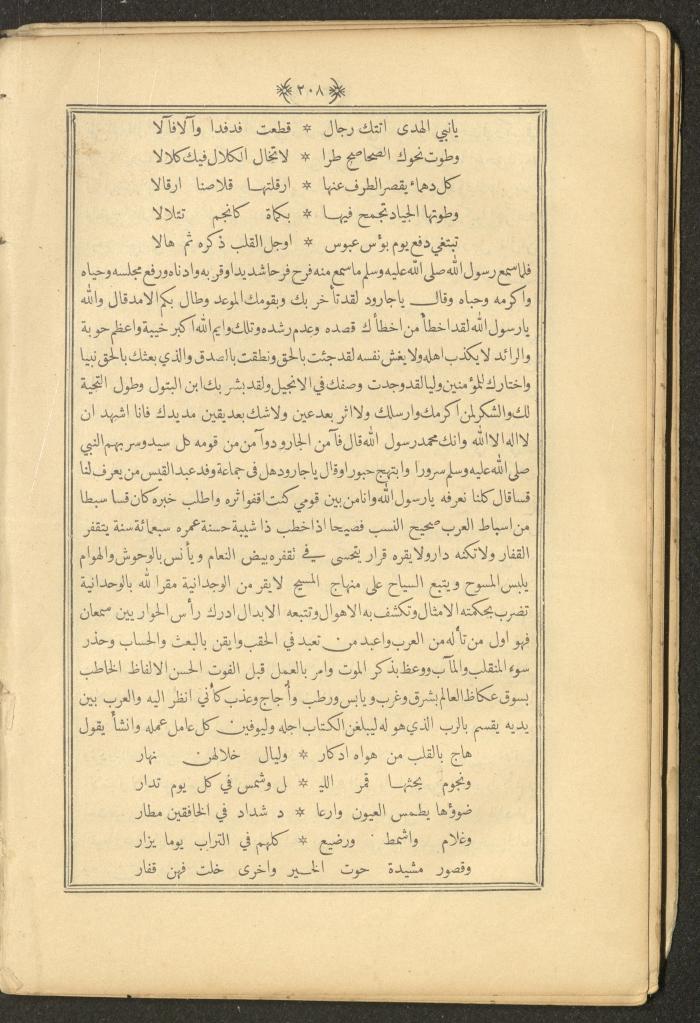 ٢٠٨
يانبي الهدى اتتك رجال * قطعت فدفدا وآلافآلا
وطوت نحوك الصحاصح طرا * لاتخال الكلال فيك كلالا
كل دهماء يقصر الطرف عنها * ارقلتها قلاصنا ارقالا
وطوتها الجياد تجمح فيها * بكماة كانجم تتلالا
تبتغي دفع يوم بؤس عبوس * اوجل القلب ذكره ثم هالا
فلما سمع رسول الله صلى الله عليه وسلم ما سمع منه فرح فرحا شديدا وقربه وادناه ورفع مجلسه وحياه
واكرمه وحباه وقال ياجارود لقد تأخر بك وبقومك الموعد وطال بكم الامد قال والله
يارسول الله لقد اخطأ من اخطأك قصده وعدم رشده وتلك وايم الله اكبر خيبة واعظم حوبة
والرائد لا يكذب اهله ولا يغش نفسه لقد جئت بالحق ونطقت بالصدق والذي بعثك بالحق نبيا
واختارك للمؤمنين وليا لقد وجدت وصفك في الانجيل ولقد بشر بك ابن البتول وطول التحية
لك والشكر لمن اكرمك وارسلك ولا اثر بعد عين ولا شك بعد يقين مد يدك فانا اشهد ان
لا اله الا الله وانك محمد رسول الله قال فآمن الجارود وآمن من قومه كل سيد وسر بهم النبي
صلى الله عليه وسلم سرورا وابتهج حبورا وقال ياجارود هل في جماعة وفد عبد القيس من يعرف لنا
قسا قال كلنا نعرفه يارسول الله وانا من بين قومي كنت اقفو اثره واطلب خبره كان قسا سبطا
من اسباط العرب صحيح النسب فصيحا اذا خطب ذا شيبة حسنة عمره سبعمائة سنة يتقفر
القفار ولا تكنه دار ولا يقره قرار يتحسى في تقفره بيض النعام ويأنس بالوحوش والهوام
يلبس المسوح ويتبع السياح على منهاج المسيح لا يقر من الوجدانية مقرا لله بالوحدانية
تضرب بحكمته الامثال وتكشف به الاهوال وتتبعه الابدال ادرك رأس الحواريين سمعان
فهو اول من تأله من العرب واعبد من تعبد في الحقب وايقن بالبعث والحساب وحذر
سوء المنقلب والمآب ووعظ بذكر الموت وامر بالعمل قبل الفوت الحسن الالفاظ الخاطب
بسوق عكاظ العالم بشرق وغرب ويابس ورطب وأجاج وعذب كأني انظر اليه والعرب بين
يديه يقسم بالرب الذي هو له ليبلغن الكتاب اجله وليوفين كل عامل عمله وانشأ يقول
هاج بالقلب من هواه ادكار * وليال خلالهن نهار
ونجوم يحثها قمر الليـ * ل وشمس في كل يوم تدار
ضوؤها يطمس العيون وارعا * د شداد في الخافقين مطار
وغلام واشمط ورضيع * كلهم في التراب يوما يزار
وقصور مشيدة حوت الخير واخرى خلت فهن قفار